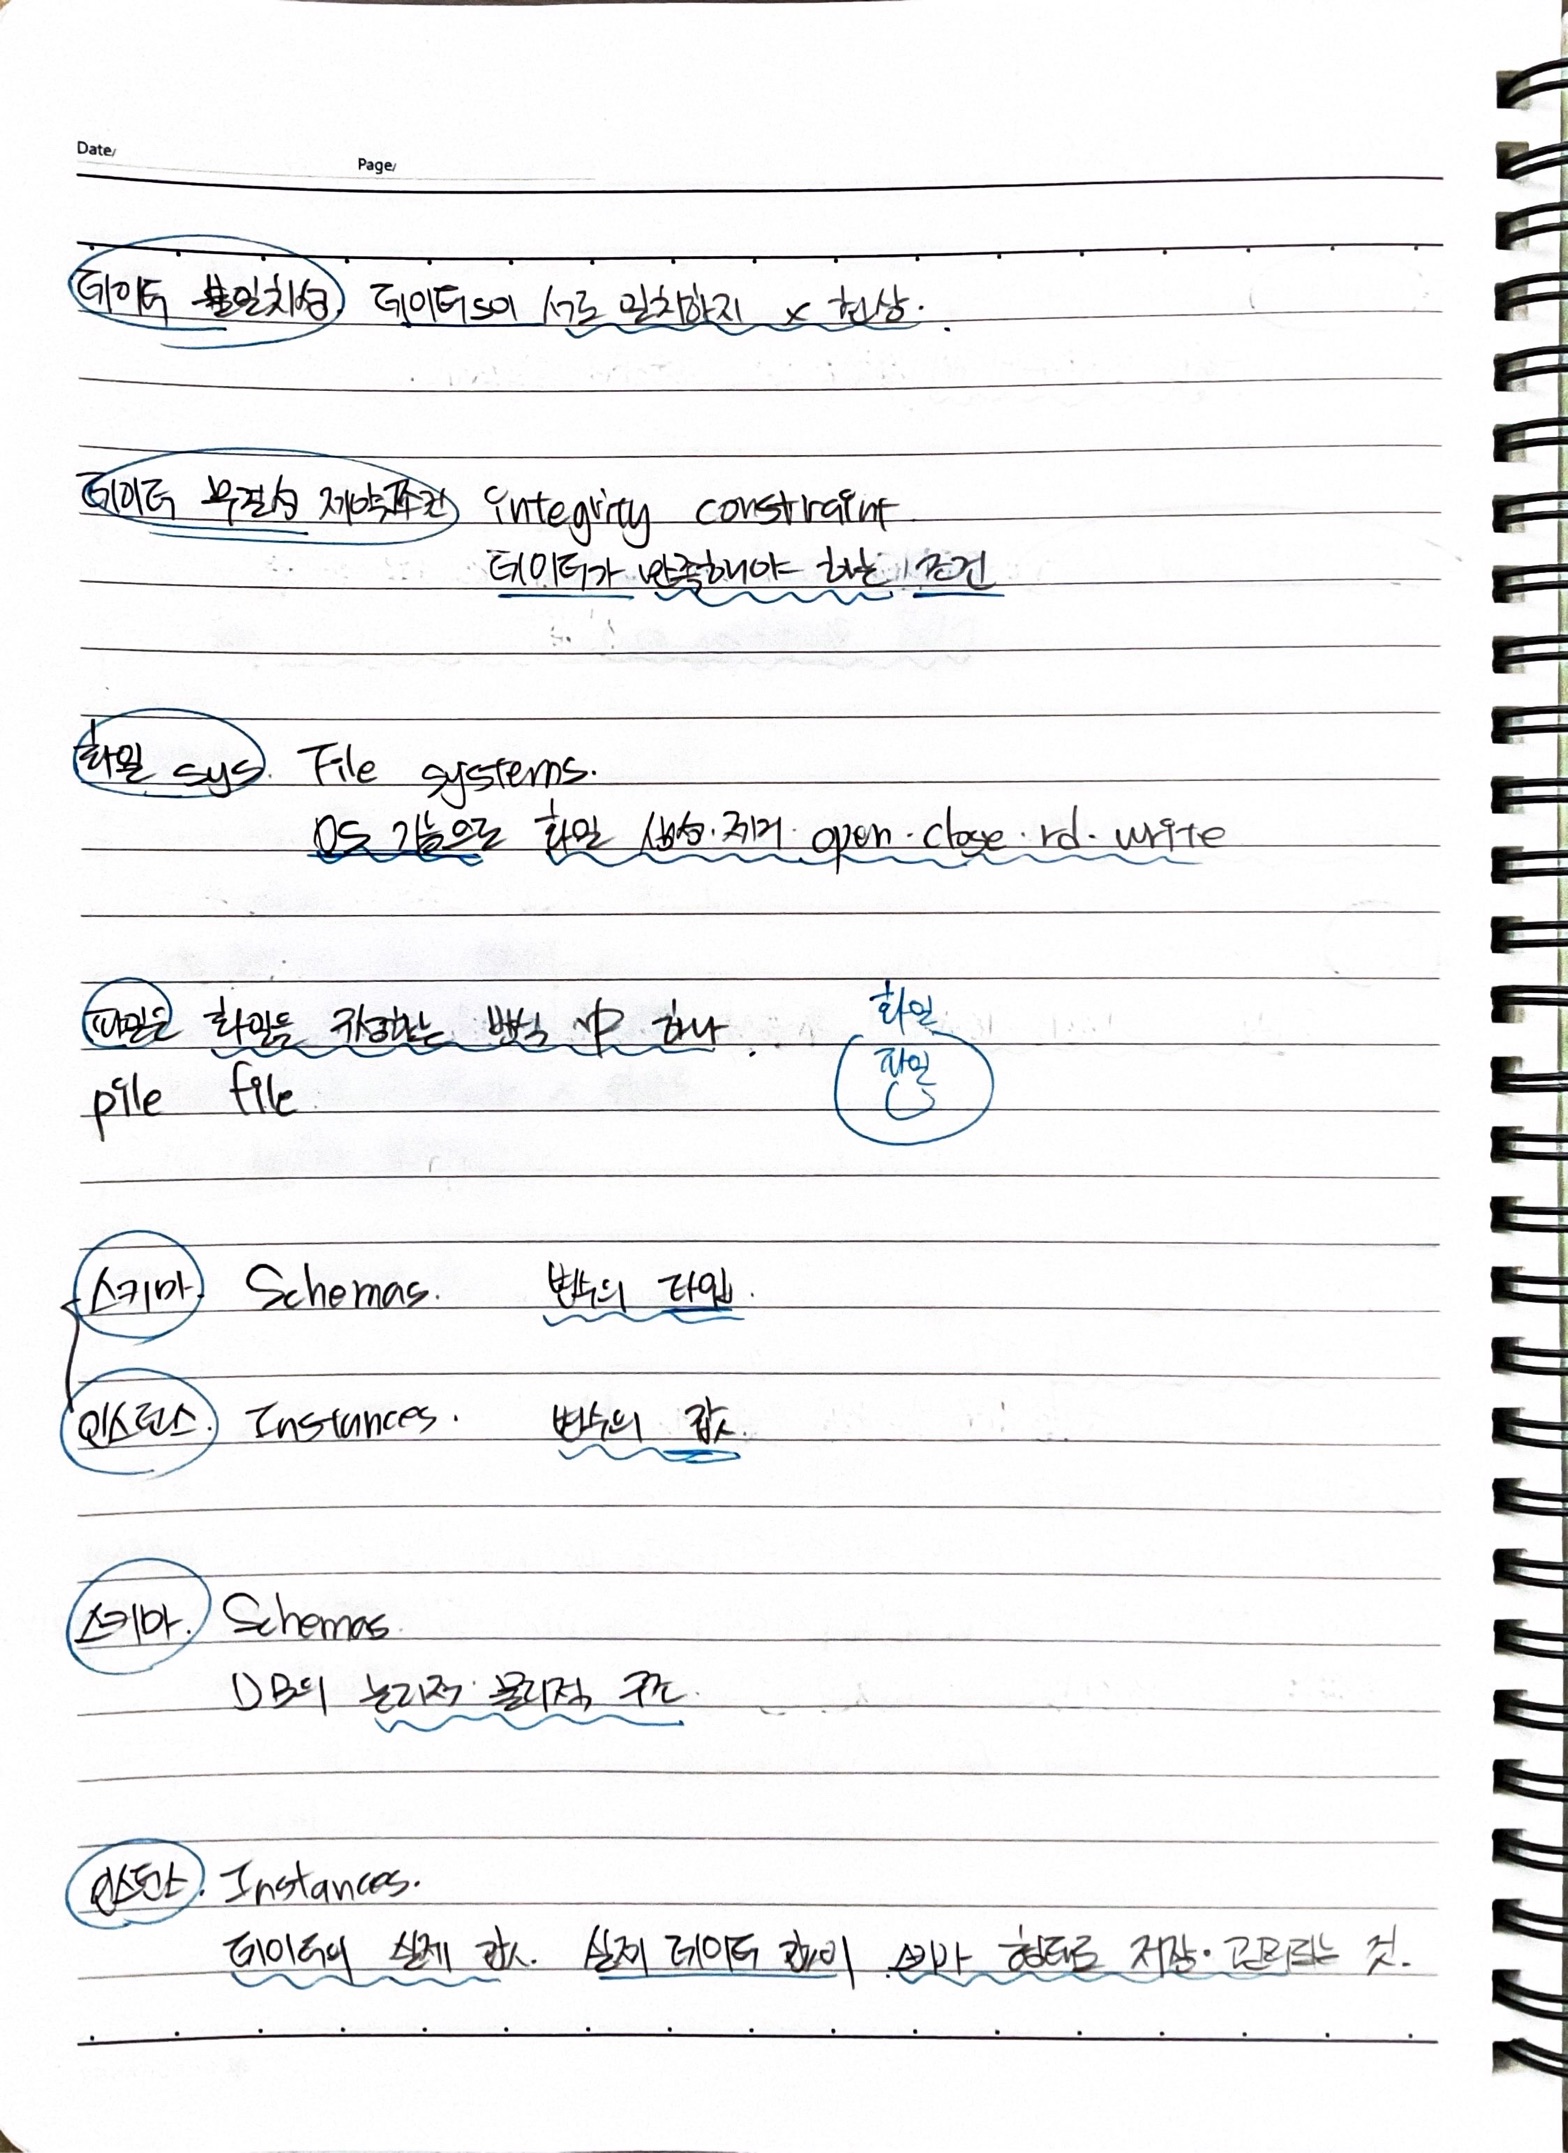 Date/
Page/
데이터 불일치성. 데이터s이 서로 일치하지 x 현상.
데이터 무결성 제약조건 integrity constraint
데이터가 만족해야 하는 조건
화일 sys. File systems.
OS 기능으로 화일 생성·제거·open·close·rd·write
파일은 화일을 구성하는 방식 中 하나.
화일
파일
pile file
스키마. Schemas. 변수의 타입.
인스턴스. Instances. 변수의 값.
스키마. Schemas.
DB의 논리적·물리적 구조.
인스턴스. Instances.
데이터의 실제 값. 실제 데이터 값이 스키마 형태로 저장·관리되는 것.